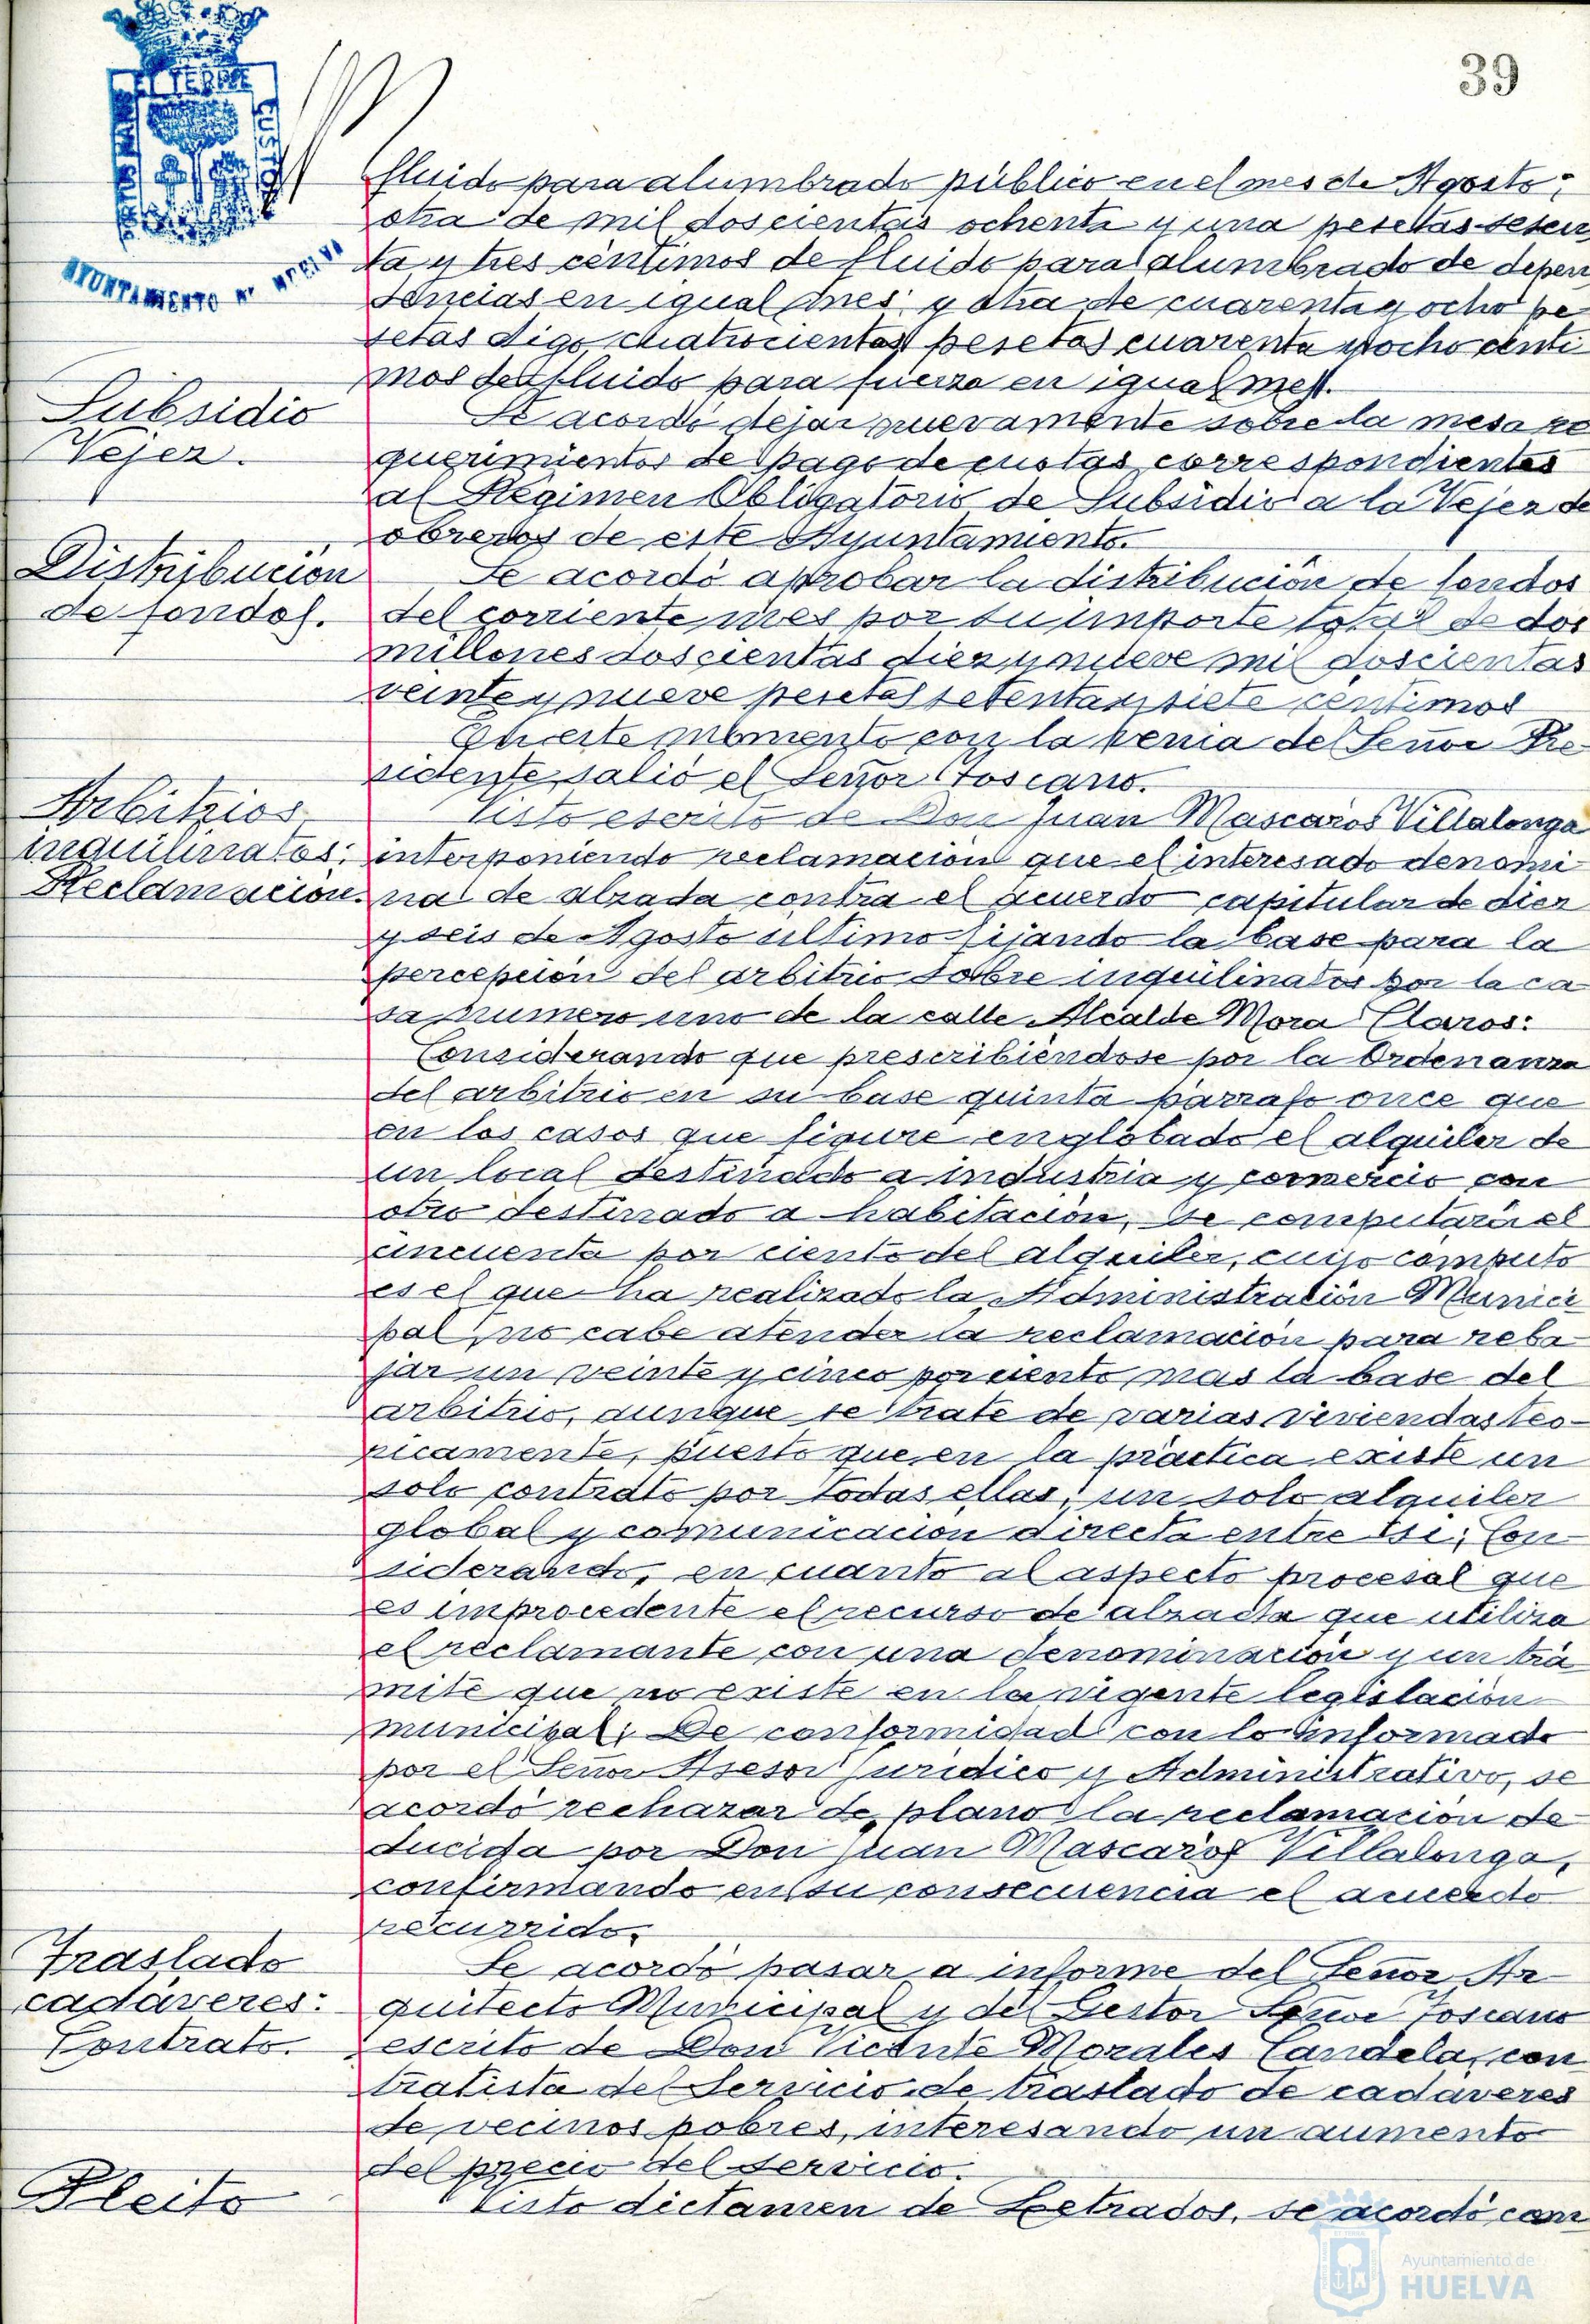 39
PORTUS MARIS ET TERRE CUSTODIA
AYUNTAMIENTO DE HUELVA
fluido para alumbrado público en el mes de Agosto;
otra de mil doscientas ochenta y una pesetas sesen
ta y tres céntimos de fluido para alumbrado de depen
dencias en igual mes; y otra de cuarenta y ocho pe
setas digo, cuatrocientas pesetas cuarenta y ocho cénti
mos de fluido para fuerza en igual mes.
Subsidio
Vejez.
Se acordó dejar nuevamente sobre la mesa re
querimientos de pago de cuotas correspondientes
al Régimen Obligatorio de Subsidio a la Vejez de
obreros de este Ayuntamiento.
Distribución
de fondos.
Se acordó aprobar la distribución de fondos
del corriente mes por su importe total de dos
millones doscientas diez y nueve mil doscientas
veinte y nueve pesetas setenta y siete centimos
En este momento con la venia del Señor Pre
sidente, salió el Señor Toscano.
Arbitrios
inquilinatos:
Reclamación.
Visto escrito de Don Juan Mascarós Villalonga
interponiendo reclamación que el interesado denomi
na de alzada contra el acuerdo capitular de diez
y seis de Agosto ultimo fijando la base para la
percepción del arbitrio sobre inquilinatos por la ca
sa numero uno de la calle Alcalde Mora Claros:
Considerando que prescribiéndose por la Ordenanza
del arbitrio en su base quinta párrafo once que
en los casos que figure englobado el alquiler de
un local destinado a industria y comercio con
otro destinado a habitación, se computará el
cincuenta por ciento del alquiler, cuyo computo
es el que ha realizado la Administración Munici
pal, no cabe atender la reclamación para reba
jar un veinte y cinco por ciento mas la base del
arbitrio, aunque se trate de varias viviendas teo-
ricamente, puesto que en la práctica existe un
solo contrato por todas ellas, un solo alquiler
global y comunicación directa entre si; Con
siderando, en cuanto al aspecto procesal que
es improcedente el recurso de alzada que utiliza
el reclamante con una denominación y un trá
mite que no existe en la vigente legislación
municipal; De conformidad con lo informado
por el Señor Asesor Juridico y Administrativo, se
acordó rechazar de plano la reclamación de
ducida por Don Juan Mascarós Villalonga,
confirmando en su consecuencia el acuerdo
recurrido.
Traslado
cadáveres:
Contrato.
Se acordó pasar a informe del Señor Ar
quitecto Municipal y del Gestor Señor Toscano
escrito de Don Vicente Morales Candela, con
tratista del Servicio de traslado de cadáveres
de vecinos pobres, interesando un aumento
del precio del servicio.
Pleito
Visto dictamen de Letrados, se acordó com
Ayuntamiento de
HUELVA